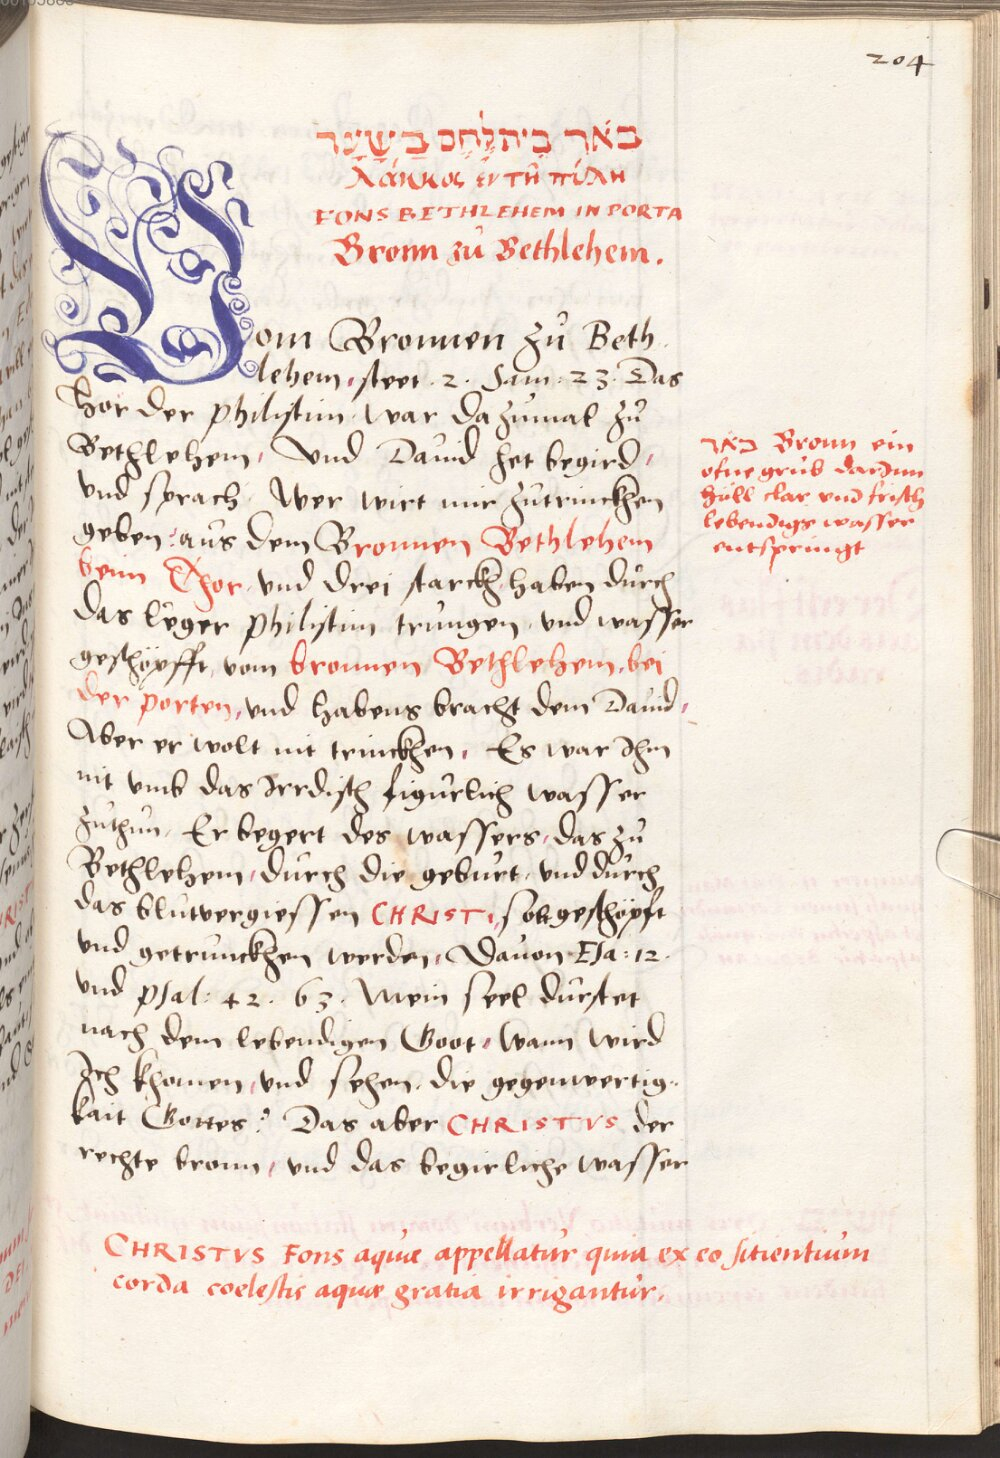 204
באר ביתלחם בשער
λάκκος ἐν τῇ πύλῃ
FONS BETHLEHEM IN PORTA
Bronn zů Bethlehem.
Vom Bronnen zů Beth
lehem, steet. 2. Sam: 23. Das
hör der Philistim war dazůmal zů
Bethlehem, Und Dauid het begird,
und sprach, Wer wirt mir zůtrinckhen
geben, aus dem Bronnen Bethlehem
benm Thor, und drei starckh haben důrch
das leger Philistim trůngen, und wasser
geschöpfft, vom bronnen Bethlehem, bei
der porten, und habens bracht dem Dauid,
Aber er wolt nit trinckhen, Es war Ihm
nit umb das Irrdisch figůrlich wasser
zůthun, Er begert des wassers, das zů
Bethlehem, důrch die gebůrt, und důrch
das blůtvergiessen CHRISTI, solt geschöpft
und getrunckhen werden, Dauon Esa: 12.
und Psal: 42. 63. Mein seel dürstet
nach dem lebendigen Goot, Wann wird
Ich khomen, und sehen, die gegenwertig-
kait Gottes? Das aber CHRISTVS der
rechte bronn, und das begirliche wasser
באר Bronn ein
ofne grůb darinn
hüll clar und frisch
lebendigs wasser
entspringt
CHRISTVS Fons aquæ appellatur quia ex eo sitientium
corda coelestis aquæ gratia irrigantur.